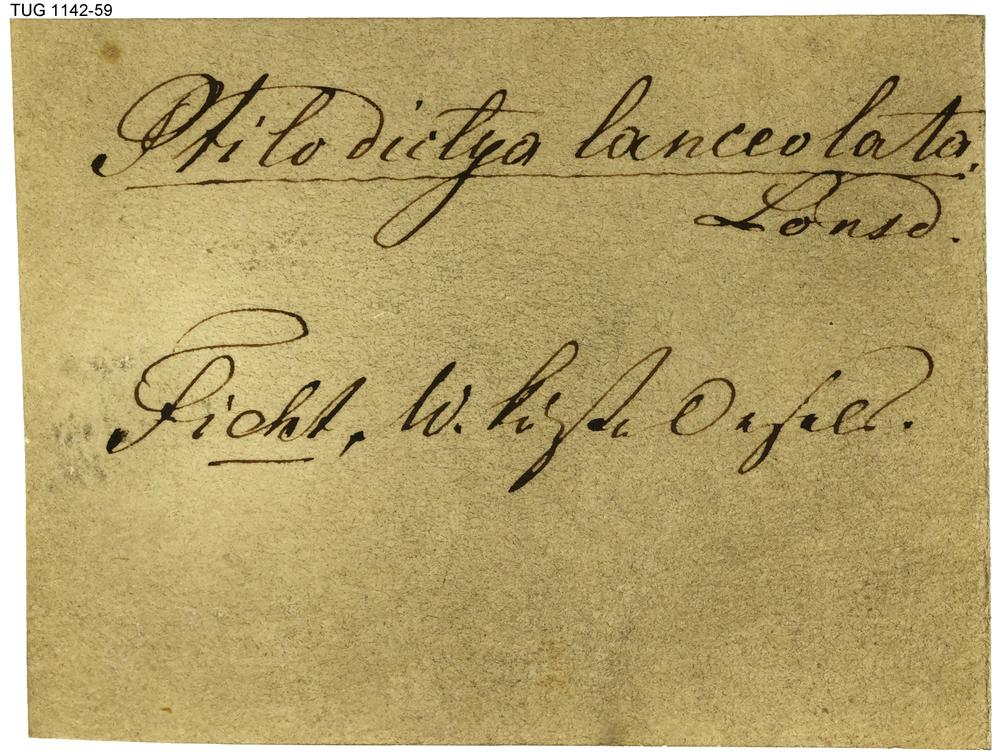 TUG 1142-59
Ptilodictya lanceolata.
Lonsd.
Ficht, W. Küste Oesels.